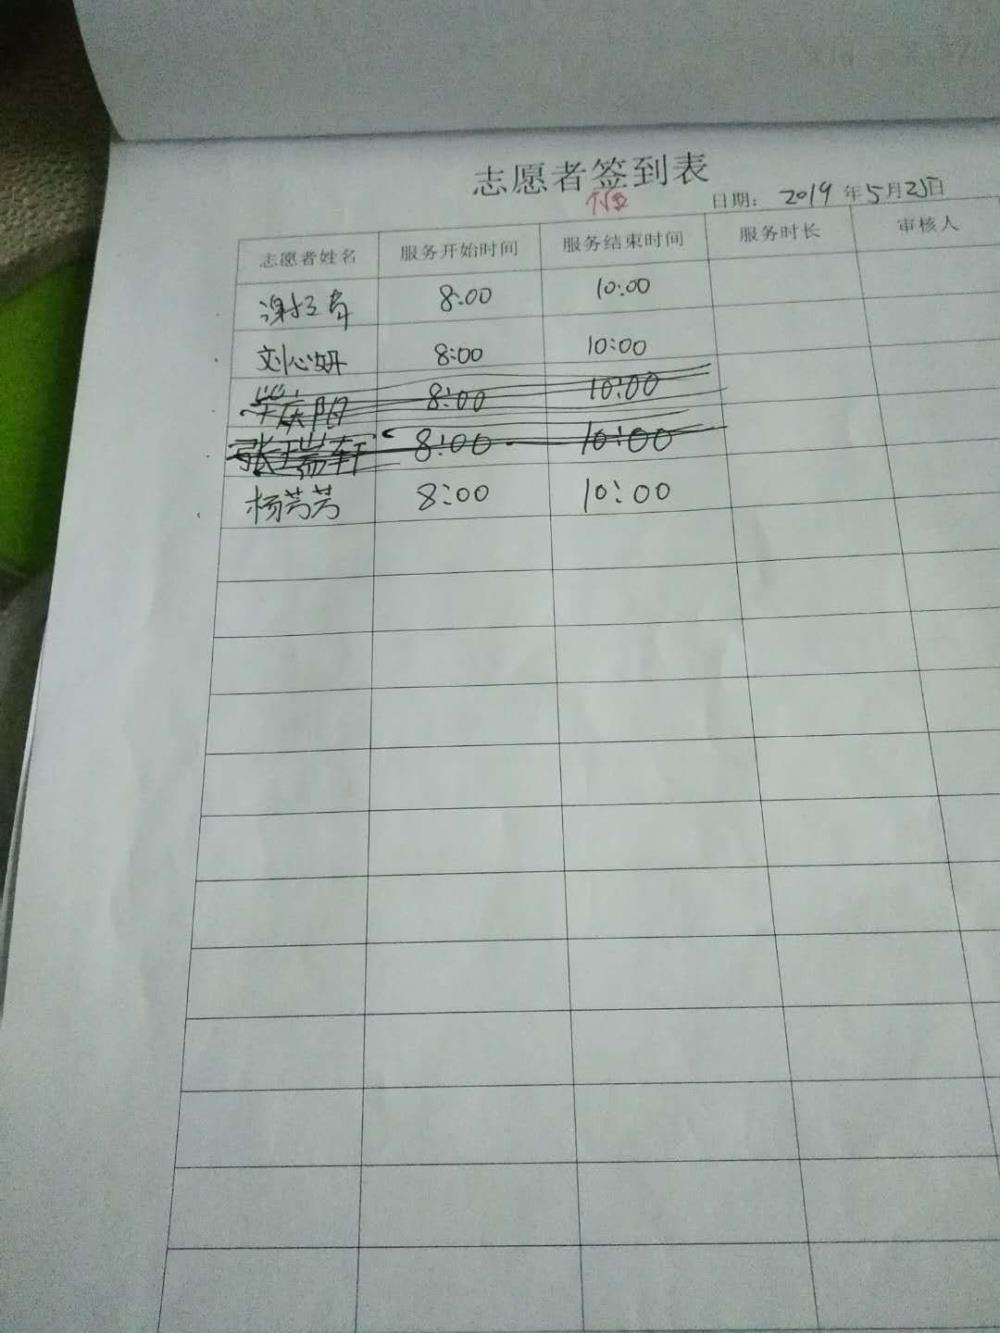 志愿者签到表
日期: 2019 年5月25日
志愿者姓名 服务开始时间 服务结束时间 服务时长 审核人
8:00 10:00
刘心妍 8:00 10:00
庆阳 8:00 10:00
张瑞轩 8:00 10:00
杨芳芳 8:00 10:00